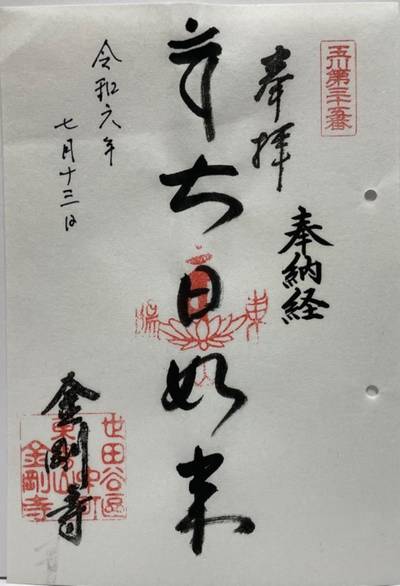 玉川第三十五番
奉拝
奉納経
大日如来
令和六年
七月十三日
金剛寺
世田谷区
中町
金剛寺